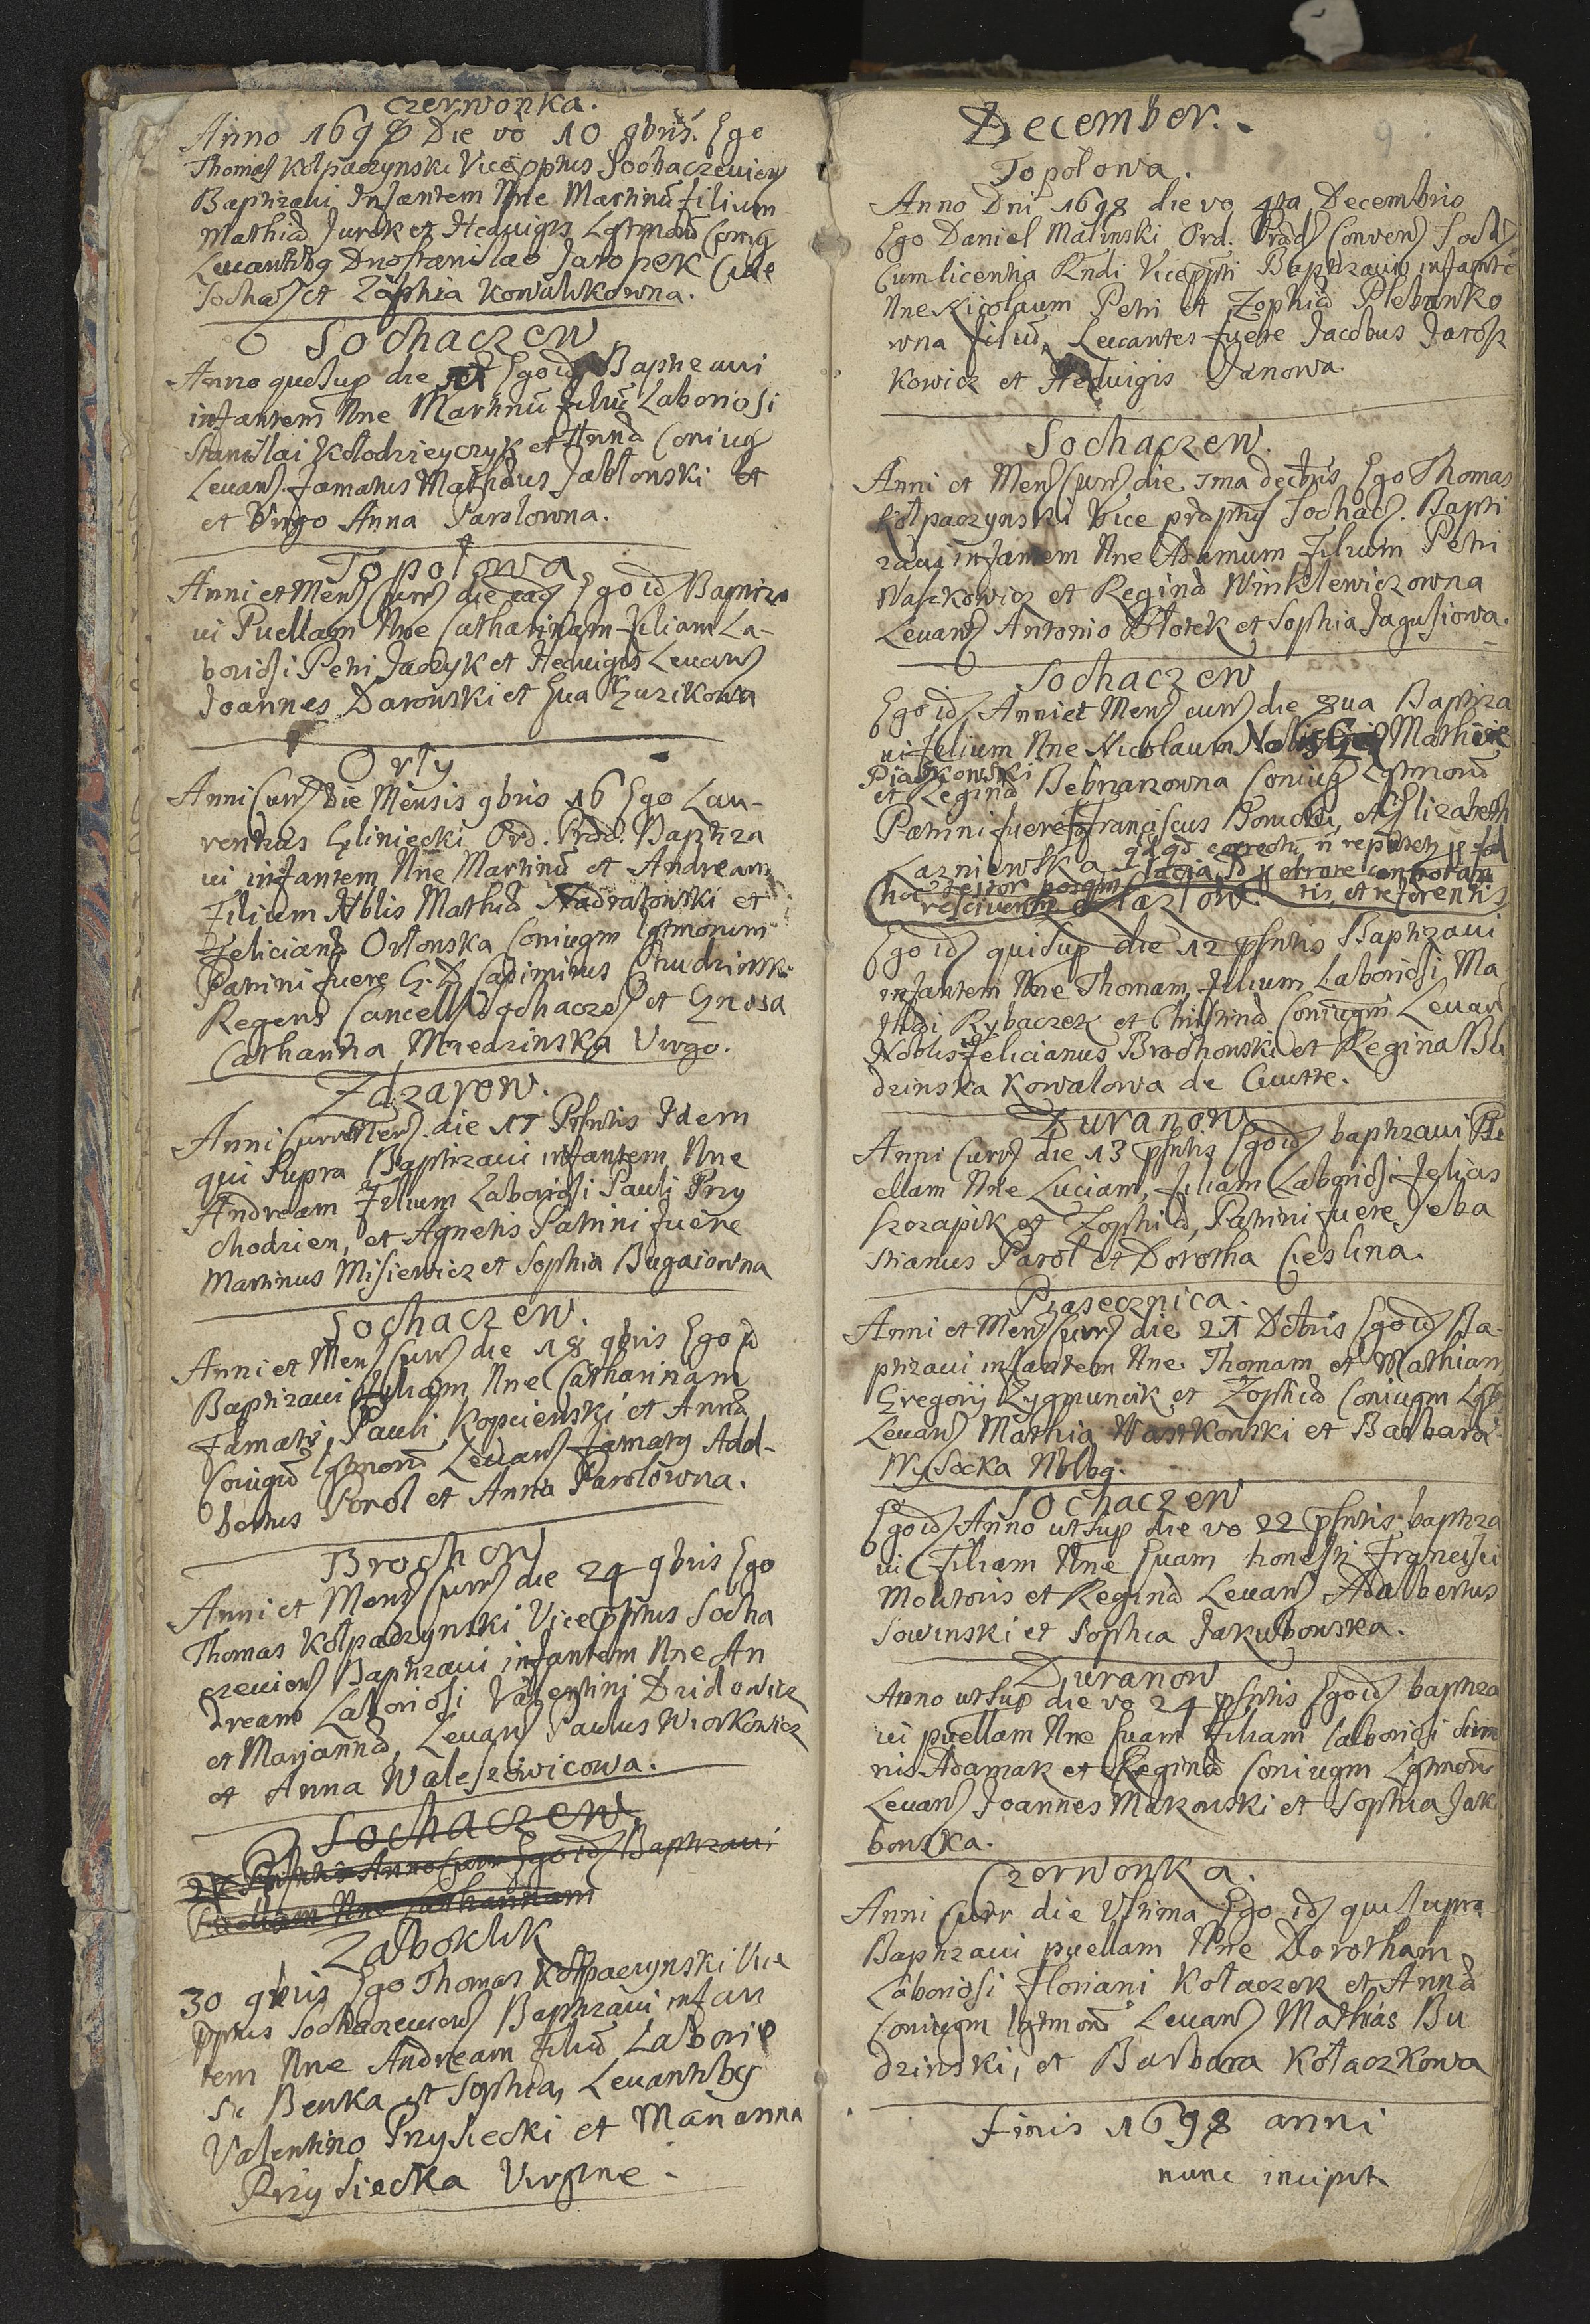 Czerwonka.
Anno 1698 Die vo 10 9bris. Ego
Thomas Kołpaczynski Viceppt̄us Sochaczevien
Baptizavi Infantem Nne Martinū Filium
Mathiæ Jurek et Hedvigis Lgtmorū Coniug
Levantibg Dno Stanislao Jaropek Cive
Sochacz et Zophia Kowalikowna.
Sochaczew
Anno quo sup die Ego id Baptizavi
infantem Nne Martinū filiū Laboriosi
Stanislai Kołodzieyczyk et Annæ Coniug
Levan Famatus Mathæus Jabłonski et
et Virgo Anna Parolowna.
Topołowa
Anni et Mens Curr die ead Ego id Baptiza
vi Puellam Nne Catharinam filiam La-
boriosi Petri Jaczyk et Hedvigis Levan
Joannes Darowski et Eva Guzikowa
Orły
Anni Curr Die Mensis 9bris 16 Ego Lau-
rentius Gliniecki Ord. Præd. Baptiza
vi infantem Nne Martinū et Andream
Filium Nblis Mathiæ Nadratowski et
Felicianæ Orłonska Coniugm lgtmorum
Patrini fuere G. D. Casimirus Chudzinsk
Regens Cancell Sochaczef et Gnosa
Catharina Miedzinska Virgo.
Zdzarow.
Anni Curr die 17 Pſntis Idem
qui Supra Baptizavi infantem Nne
Andream Filium Laboriosi Pauli Przy
chodzien, et Agnetis Patrini fuere
Martinus Misiewicz et Sophia Bugaiowna
Sochaczew.
Anni et Men Curr die 18 9bris Ego id
Baptizavi filiam Nne Catharinam
Famati Pauli Kopcienski et Annæ
Coniugū lgtmorū Levan Famatg Adal-
bertus Porol et Anna Parolowna.
Brochow
Anni et Mens Curr die 24 9bris Ego
Thomas Kołpaczynski Viceppt̄us Socha
czevien Baptizavi infantem Nne An
dream Laboriosi Valentini Dzidowicz
et Marjannæ, Levan Paulus Wiorkowicz
et Anna Waleszowicowa.
Sochaczew
Pſntis Anno Curr Ego id Baptizavi
Puellam Nne Catharinam
Załboklik
30 9bris Ego Thomas Kołpaczynski Vice
pptus Sochaczevien Baptizavi infan
tem Nne Andream Filiū Laborio
si Benka et Sophia, Levantibg
Valentino Przysiecki et Marianna
Przysiecka Virgine.
December.
9
Topolowa.
Anno Dni 1698 die vo 4ta Decembris
Ego Daniel Malinski Ord. Præd Conven Soch
Cum licentia Rndi Viceppti Baptizavi infantē
Nne Nicolaum Petri et Zophiæ Plebanko
wna filiū, Levantes fuere Jacobus Jarosz
kowicz et Hedvigis Janowa.
Sochaczew.
Anni et Mens Curr die 7ma decbris Ego Thomas
Kołpaczynski Vice præptus Sochacz. Bapti
zavi infantem Nne Adamum Filium Petri
Waszkowicz et Reginæ Winklewiczowna
Levan Antonio Płotek et Sophia Jagusiowa.
Sochaczew
Ego id Anni et Mens curr die 8va Baptiza
vi filium Nne Nicolaum Mathiæ
Piaskowski
et Reginæ Bebnarowna Coniug Lgtmorū
Patrini fuere Franciscus Tomicki, et Elizabeth
Lazniewska
Ego id qui sup die 12 pſntis Baptizavi
infantem Nne Thomam, filium Laboriosi Ma
thiæ Rybaczek et Christinæ Coniugm Levan
Noblis Felicianus Brochowski et Regina Bu
dzinska Kowalowa de Civitte.
Duranow
Anni Curr die 13 pſntis Ego id baptizavi Pu
ellam Nne Luciam, filiam Laboriosi Felicis
szczapik et Zophiæ, Patrini fuere Seba
stianus Parol et Dorotha Cieslina.
Piasecznica.
Anni et Mens Curr die 21 Decbris Ego id Ba-
ptizavi infantem Nne Thomam et Mathiam
Gregorij Zygmuncik et Zophiæ Coniugm Lgt
Levan Mathia Waszkowski et Barbara
Wysocka Nblbg.
Sochaczew
Ego id Anno ut sup die vo 22 pſntis baptiza
vi Filiam Nne Evam honesti Francisci
Molitoris et Reginæ Levan Adalbertus
Sowinski et Sophia Jakubowska.
Duranow
Anno ut sup die vo 24 pſntis Ego id baptiza
vi puellam Nne Evam Filiam laboriosi
nis Adamak et Reginæ Coniugm Lgtmorū
Levan Joannes Makowski et Sophia Jak
bowska.
Czerwonka.
Anni Curr die Ultima Ego id qui supra
Baptizavi puellam Nne Dorotham
Laboriosi Floriani Kołaczek et Annæ
Coniugm lgtmorū Levan Mathias Bu
dzinski, et Barbara Kołaczkowa
Finis 1698 anni
nunc incipit